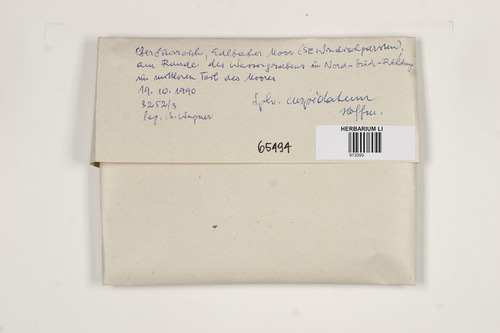 Oberösterreich, Edlbacher Moor (SE Windischgarsten),
am Rande des Wassergrabens in Nord-Süd-Richtung
im mittleren Teil des Moores
19. 10. 1990
8252/3
leg. S. Wagner
Sph. cuspidatum
Hoffm.
HERBARIUM LI
913393
65494